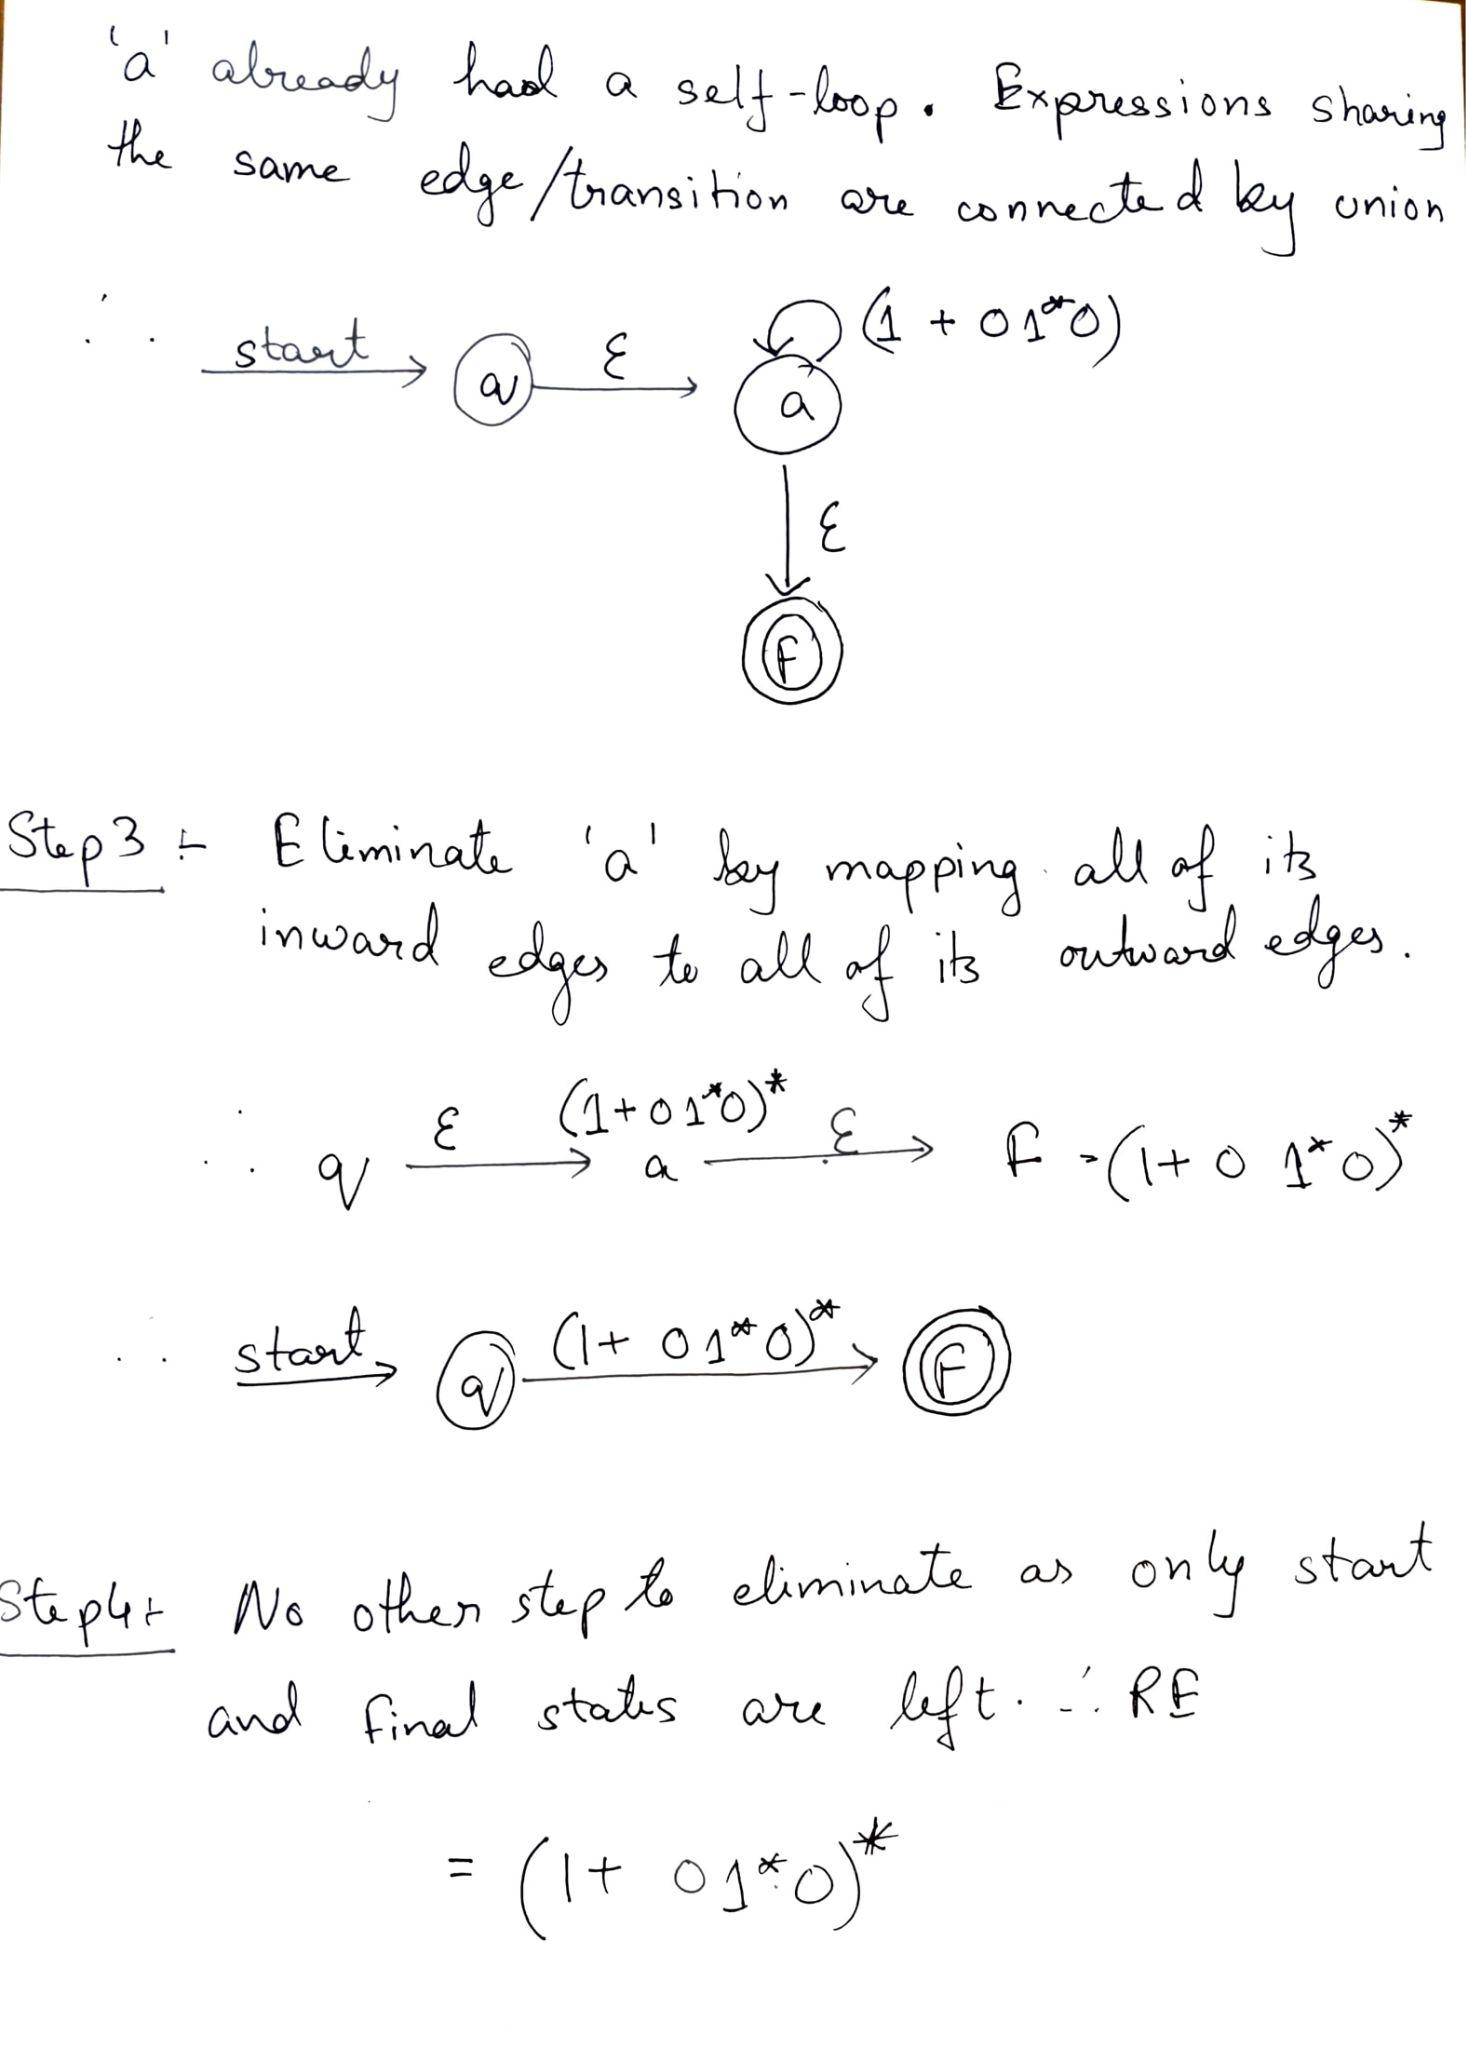 'a' already had a self-loop. Expressions sharing
the same edge/transition are connected by union
∴ start q ε a (1 + 01*0)
ε
F
Step 3 :- Eliminate 'a' by mapping all of its
inward edges to all of its outward edges.
∴ q ε (1+01*0)* a ε F = (1+01*0)*
∴ start q (1+01*0)* F
Step 4 :- No other step to eliminate as only start
and final states are left. ∴ RE
= (1+01*0)*